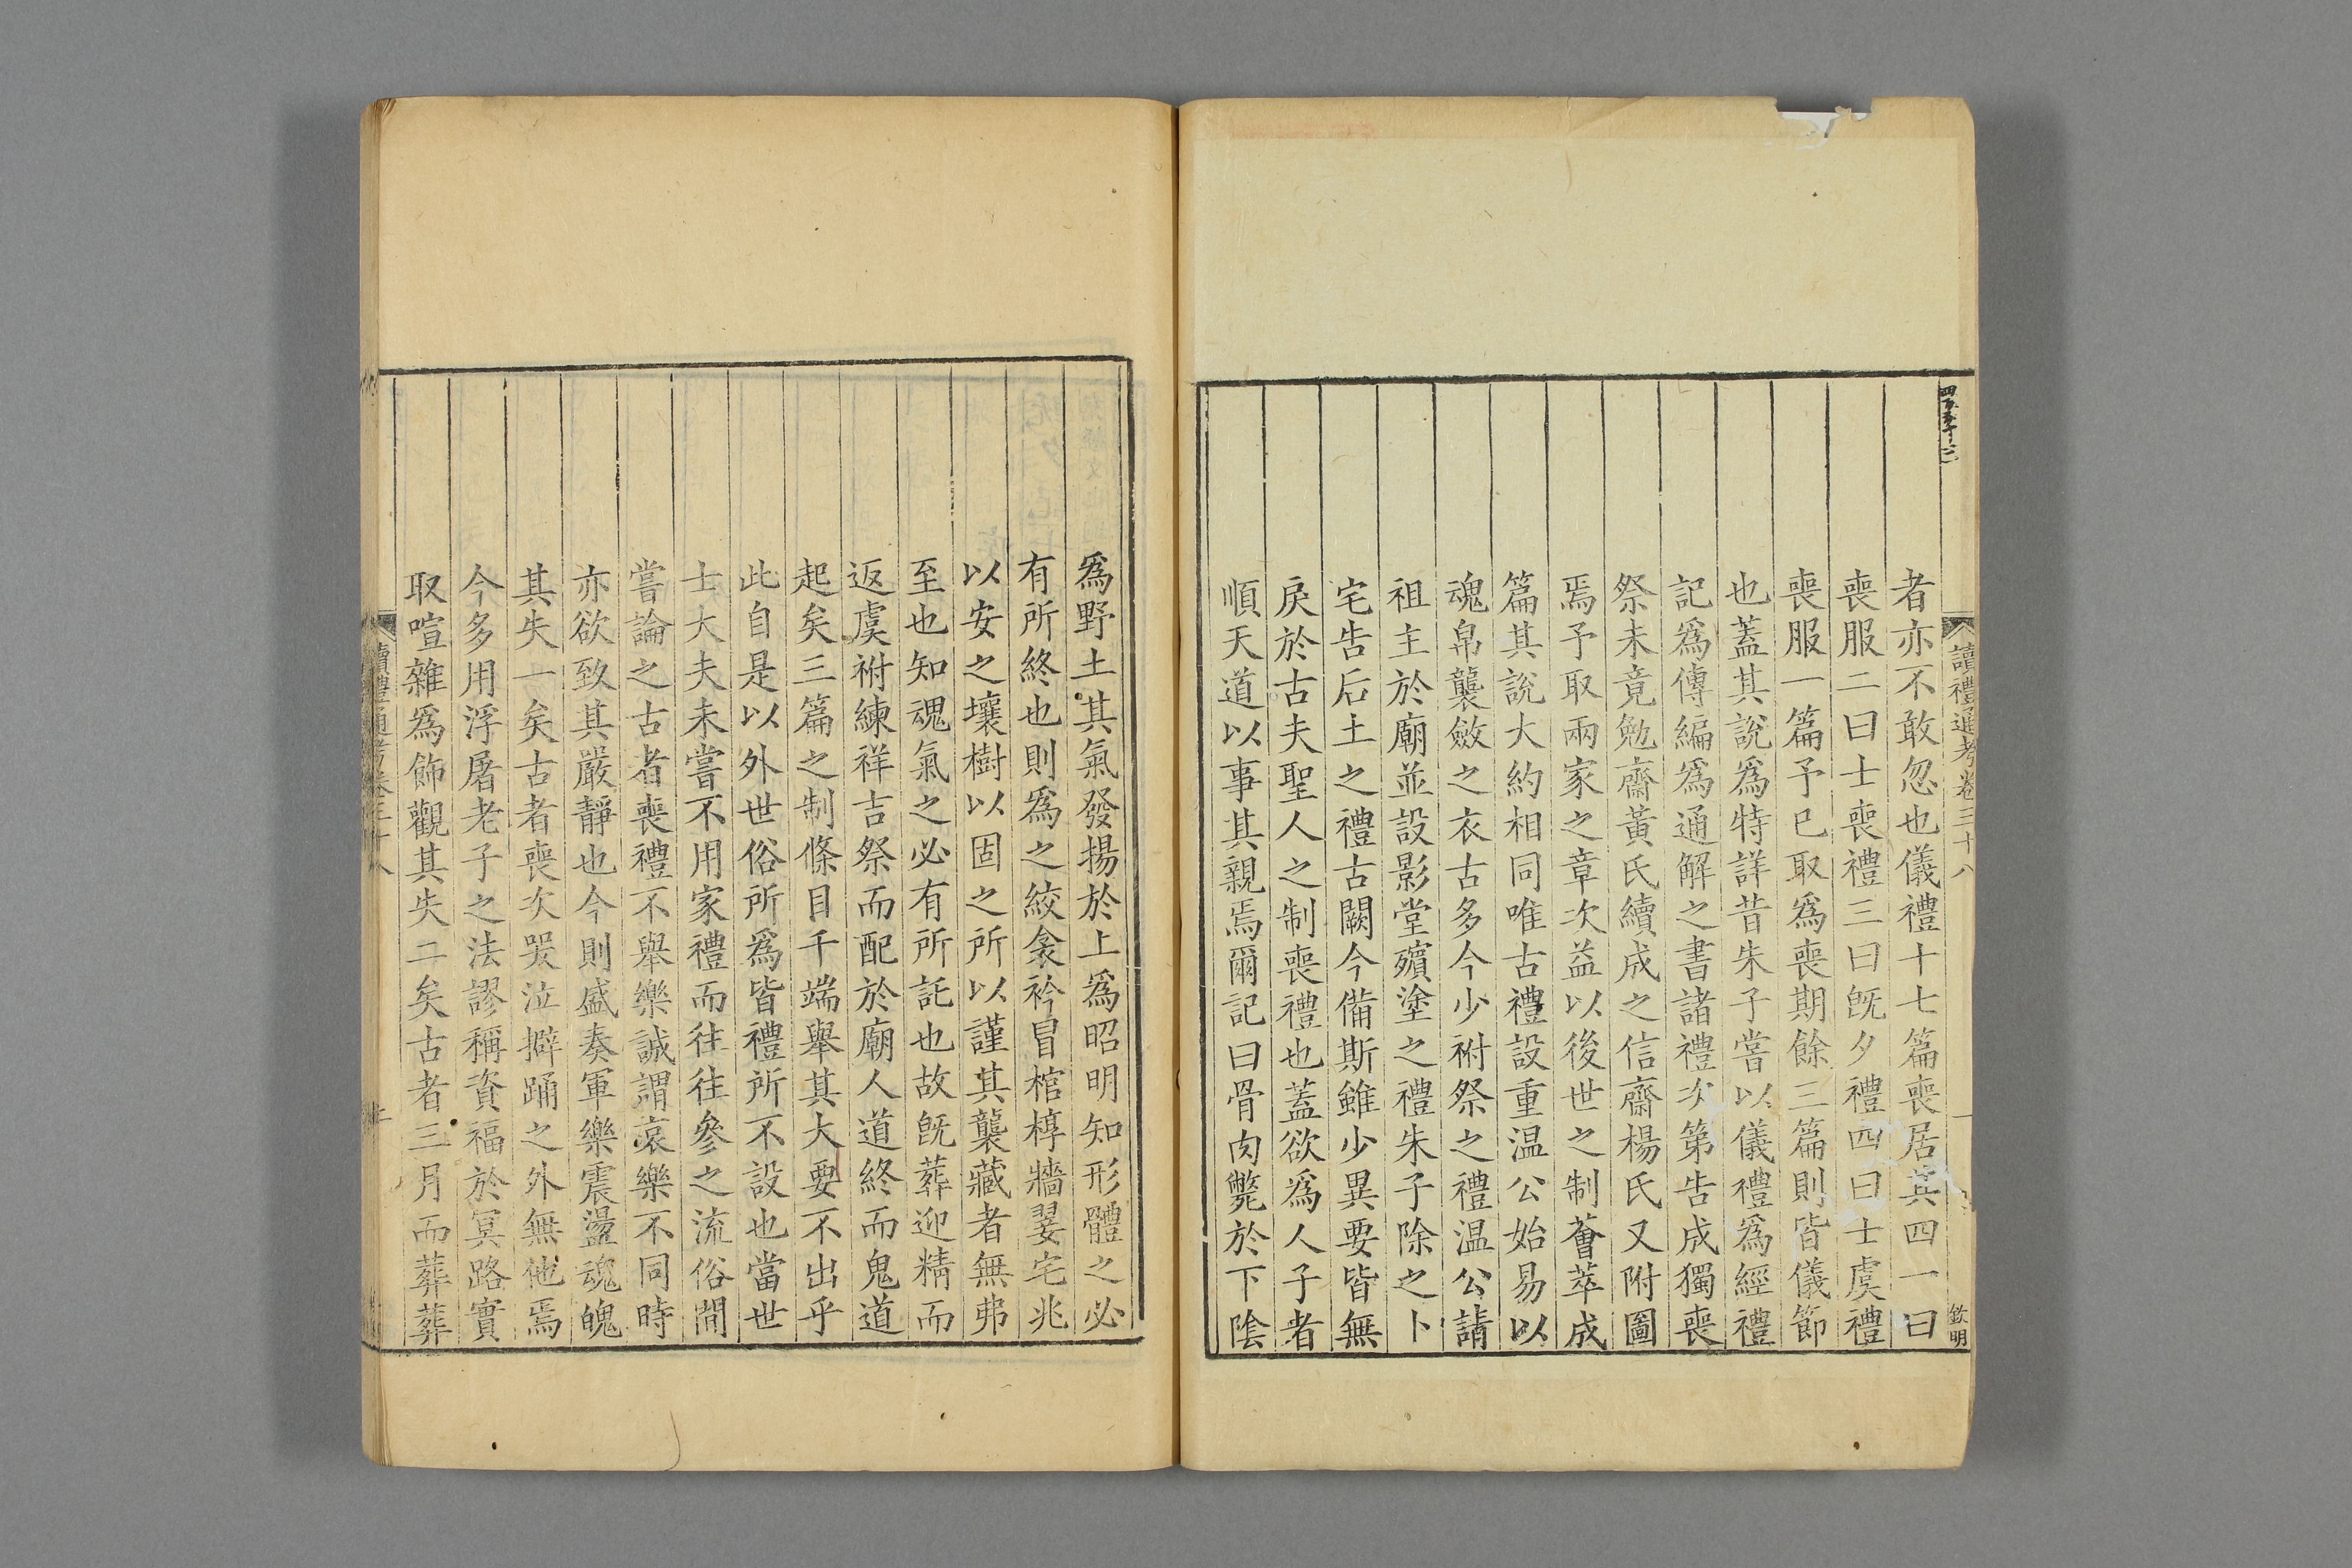 讀禮通考卷三十八
一
欽明
者亦不敢忽也儀禮十七篇喪居其四一曰
喪服二曰士喪禮三曰旣夕禮四曰士虞禮
喪服一篇予已取爲喪期餘三篇則皆儀節
也蓋其說爲特詳昔朱子嘗以儀禮爲經禮
記爲傳編爲通解之書諸禮次第告成獨喪
祭未竟勉齋黃氏續成之信齋楊氏又附圖
焉予取兩家之章次益以後世之制薈萃成
篇其說大約相同唯古禮設重温公始易以
魂帛襲斂之衣古多今少祔祭之禮温公請
祖主於廟並設影堂殯塗之禮朱子除之卜
宅告后土之禮古闕今備斯雖少異要皆無
戾於古夫聖人之制喪禮也蓋欲爲人子者
順天道以事其親焉爾記曰骨肉斃於下陰
爲野土其氣發揚於上爲昭明知形體之必
有所終也則爲之絞衾衿冒棺椁牆翣宅兆
以安之壤樹以固之所以謹其襲藏者無弗
至也知魂氣之必有所託也故旣葬迎精而
返虞祔練祥吉祭而配於廟人道終而鬼道
起矣三篇之制條目千端舉其大要不出乎
此自是以外世俗所爲皆禮所不設也當世
士大夫未嘗不用家禮而往往參之流俗間
嘗論之古者喪禮不舉樂誠謂哀樂不同時
亦欲致其嚴靜也今則盛奏軍樂震盪魂魄
其失一矣古者喪次哭泣擗踊之外無他焉
今多用浮屠老子之法謬稱資福於冥路實
取喧雜爲飾觀其失二矣古者三月而葬葬
讀禮通考卷三十八